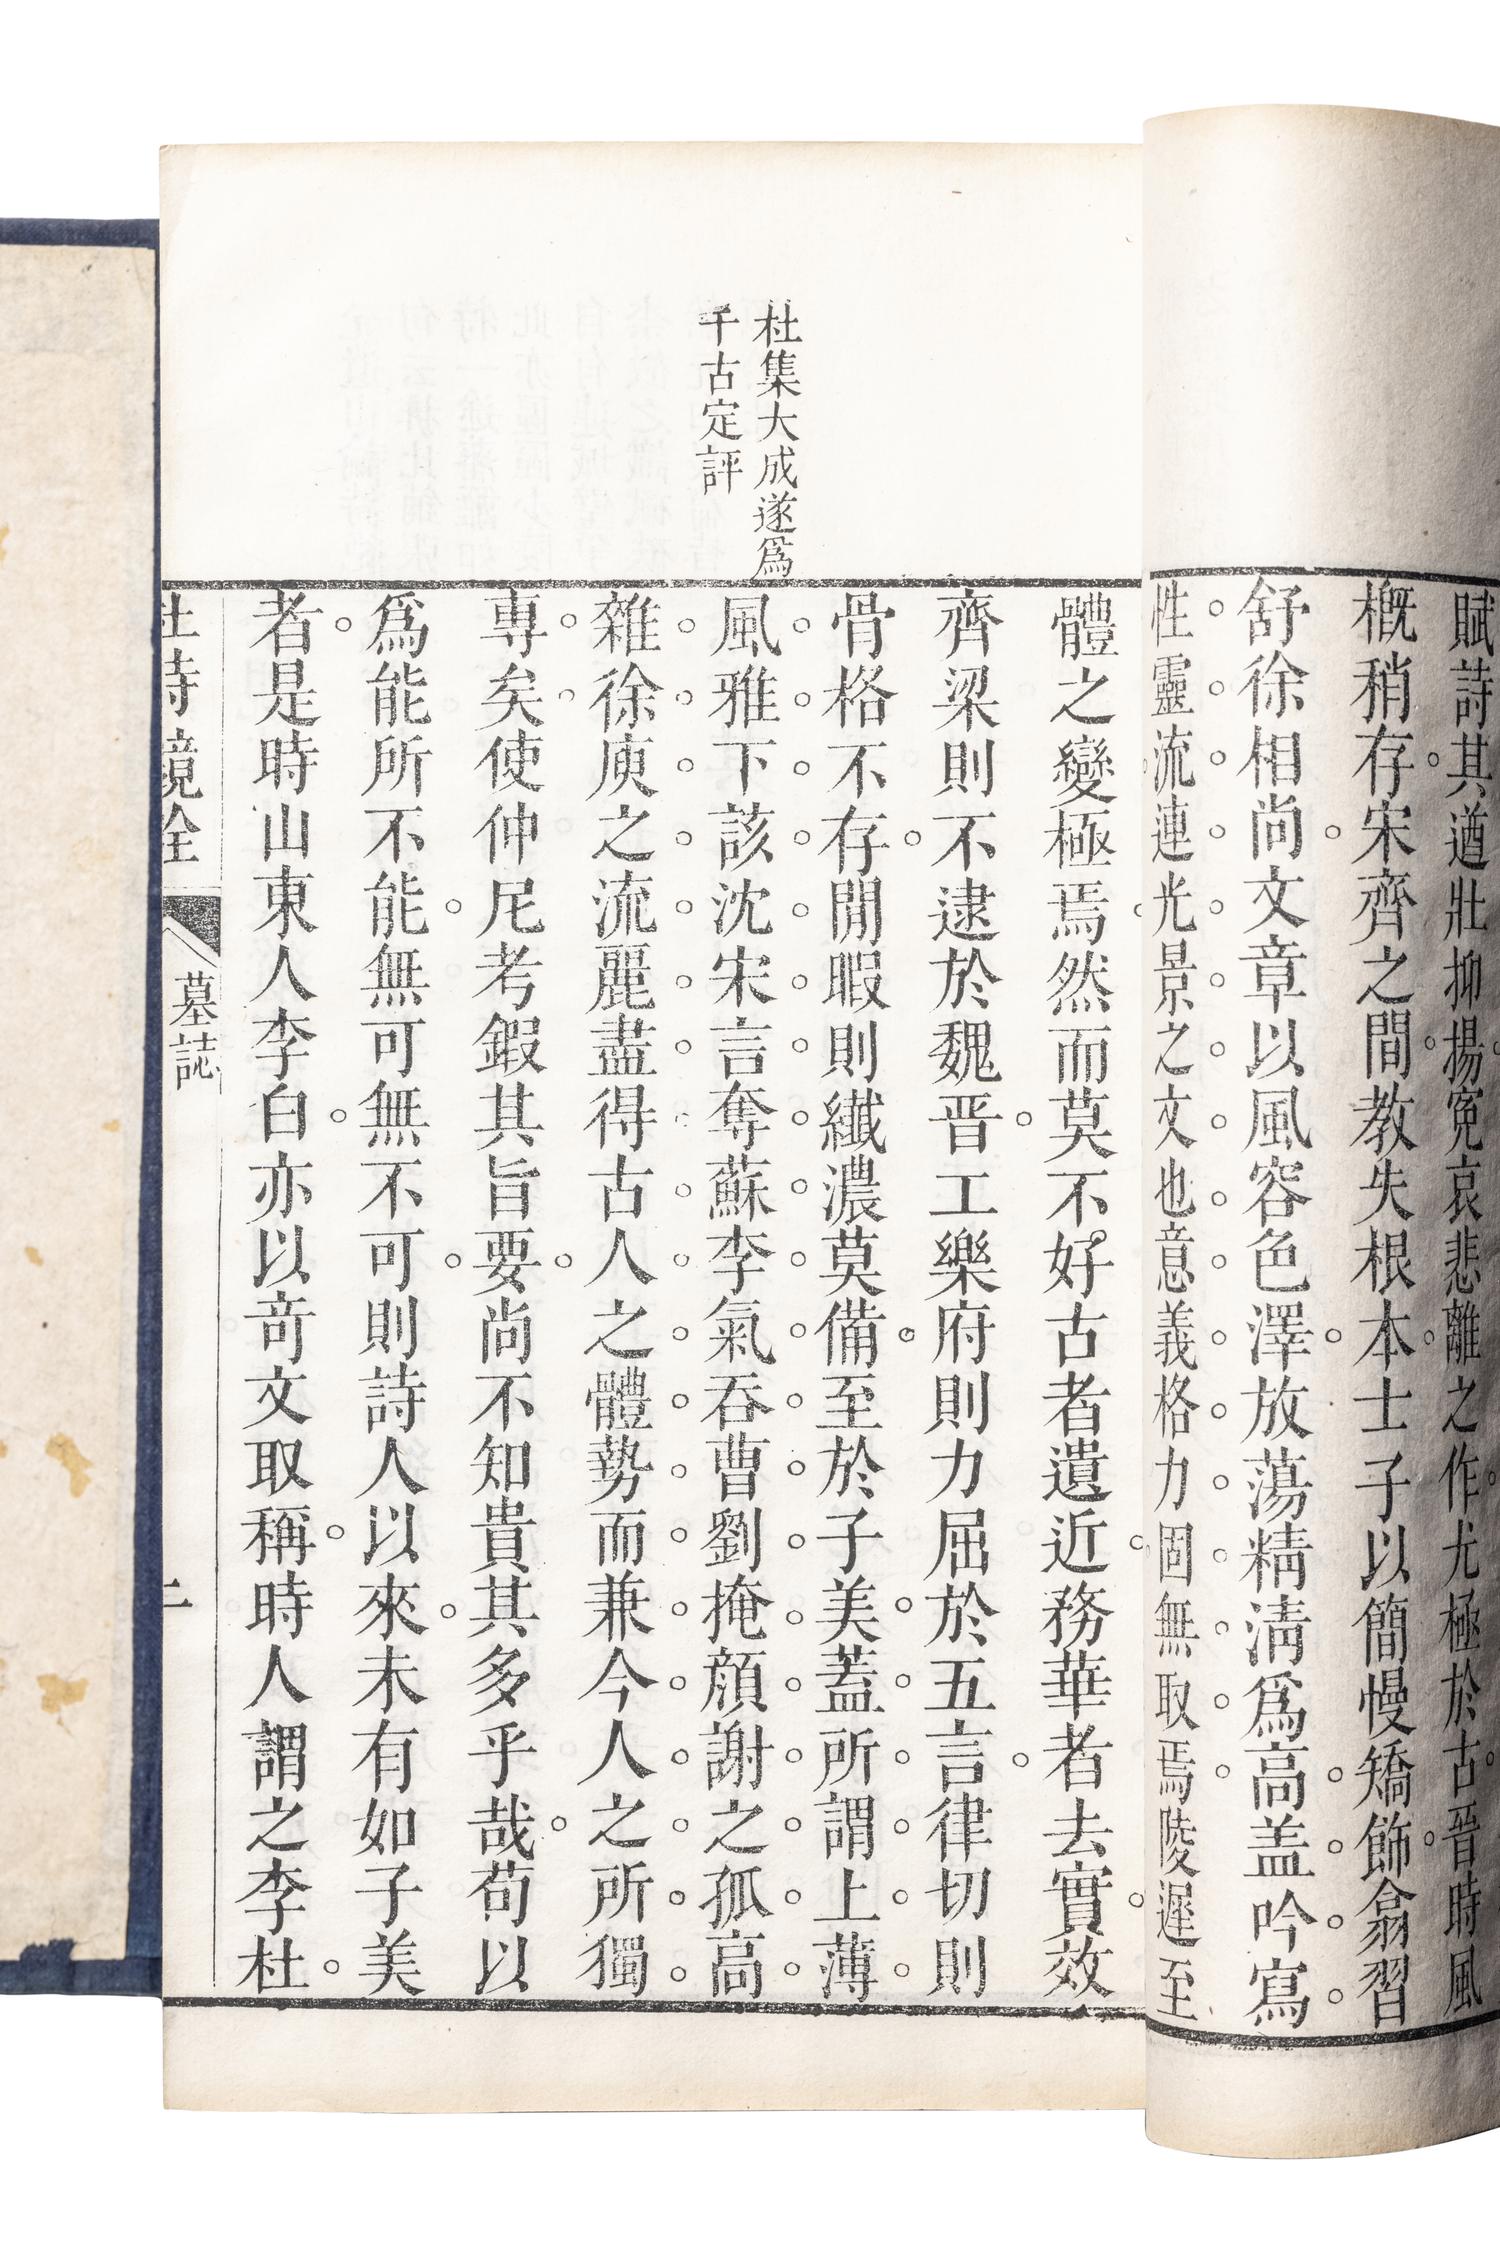 賦詩其遒壯抑揚冤哀悲離之作尤極於古晉時風
概稍存宋齊之間教失根本士子以簡慢矯飾翕習
舒徐相尚文章以風容色澤放蕩精清爲高盖吟寫
性靈流連光景之文也意義格力固無取焉陵遲至
杜集大成遂爲
千古定評
體之變極焉然而莫不好古者遺近務華者去實效
齊梁則不逮於魏晋工樂府則力屈於五言律切則
骨格不存閒暇則纖濃莫備至於子美蓋所謂上薄
風雅下該沈宋言奪蘇李氣吞曹劉掩顔謝之孤高
雜徐庾之流麗盡得古人之體勢而兼今人之所獨
專矣使仲尼考鍜其旨要尚不知貴其多乎哉苟以
爲能所不能無可無不可則詩人以來未有如子美
者是時山東人李白亦以竒文取稱時人謂之李杜
杜詩鏡全
墓誌
二